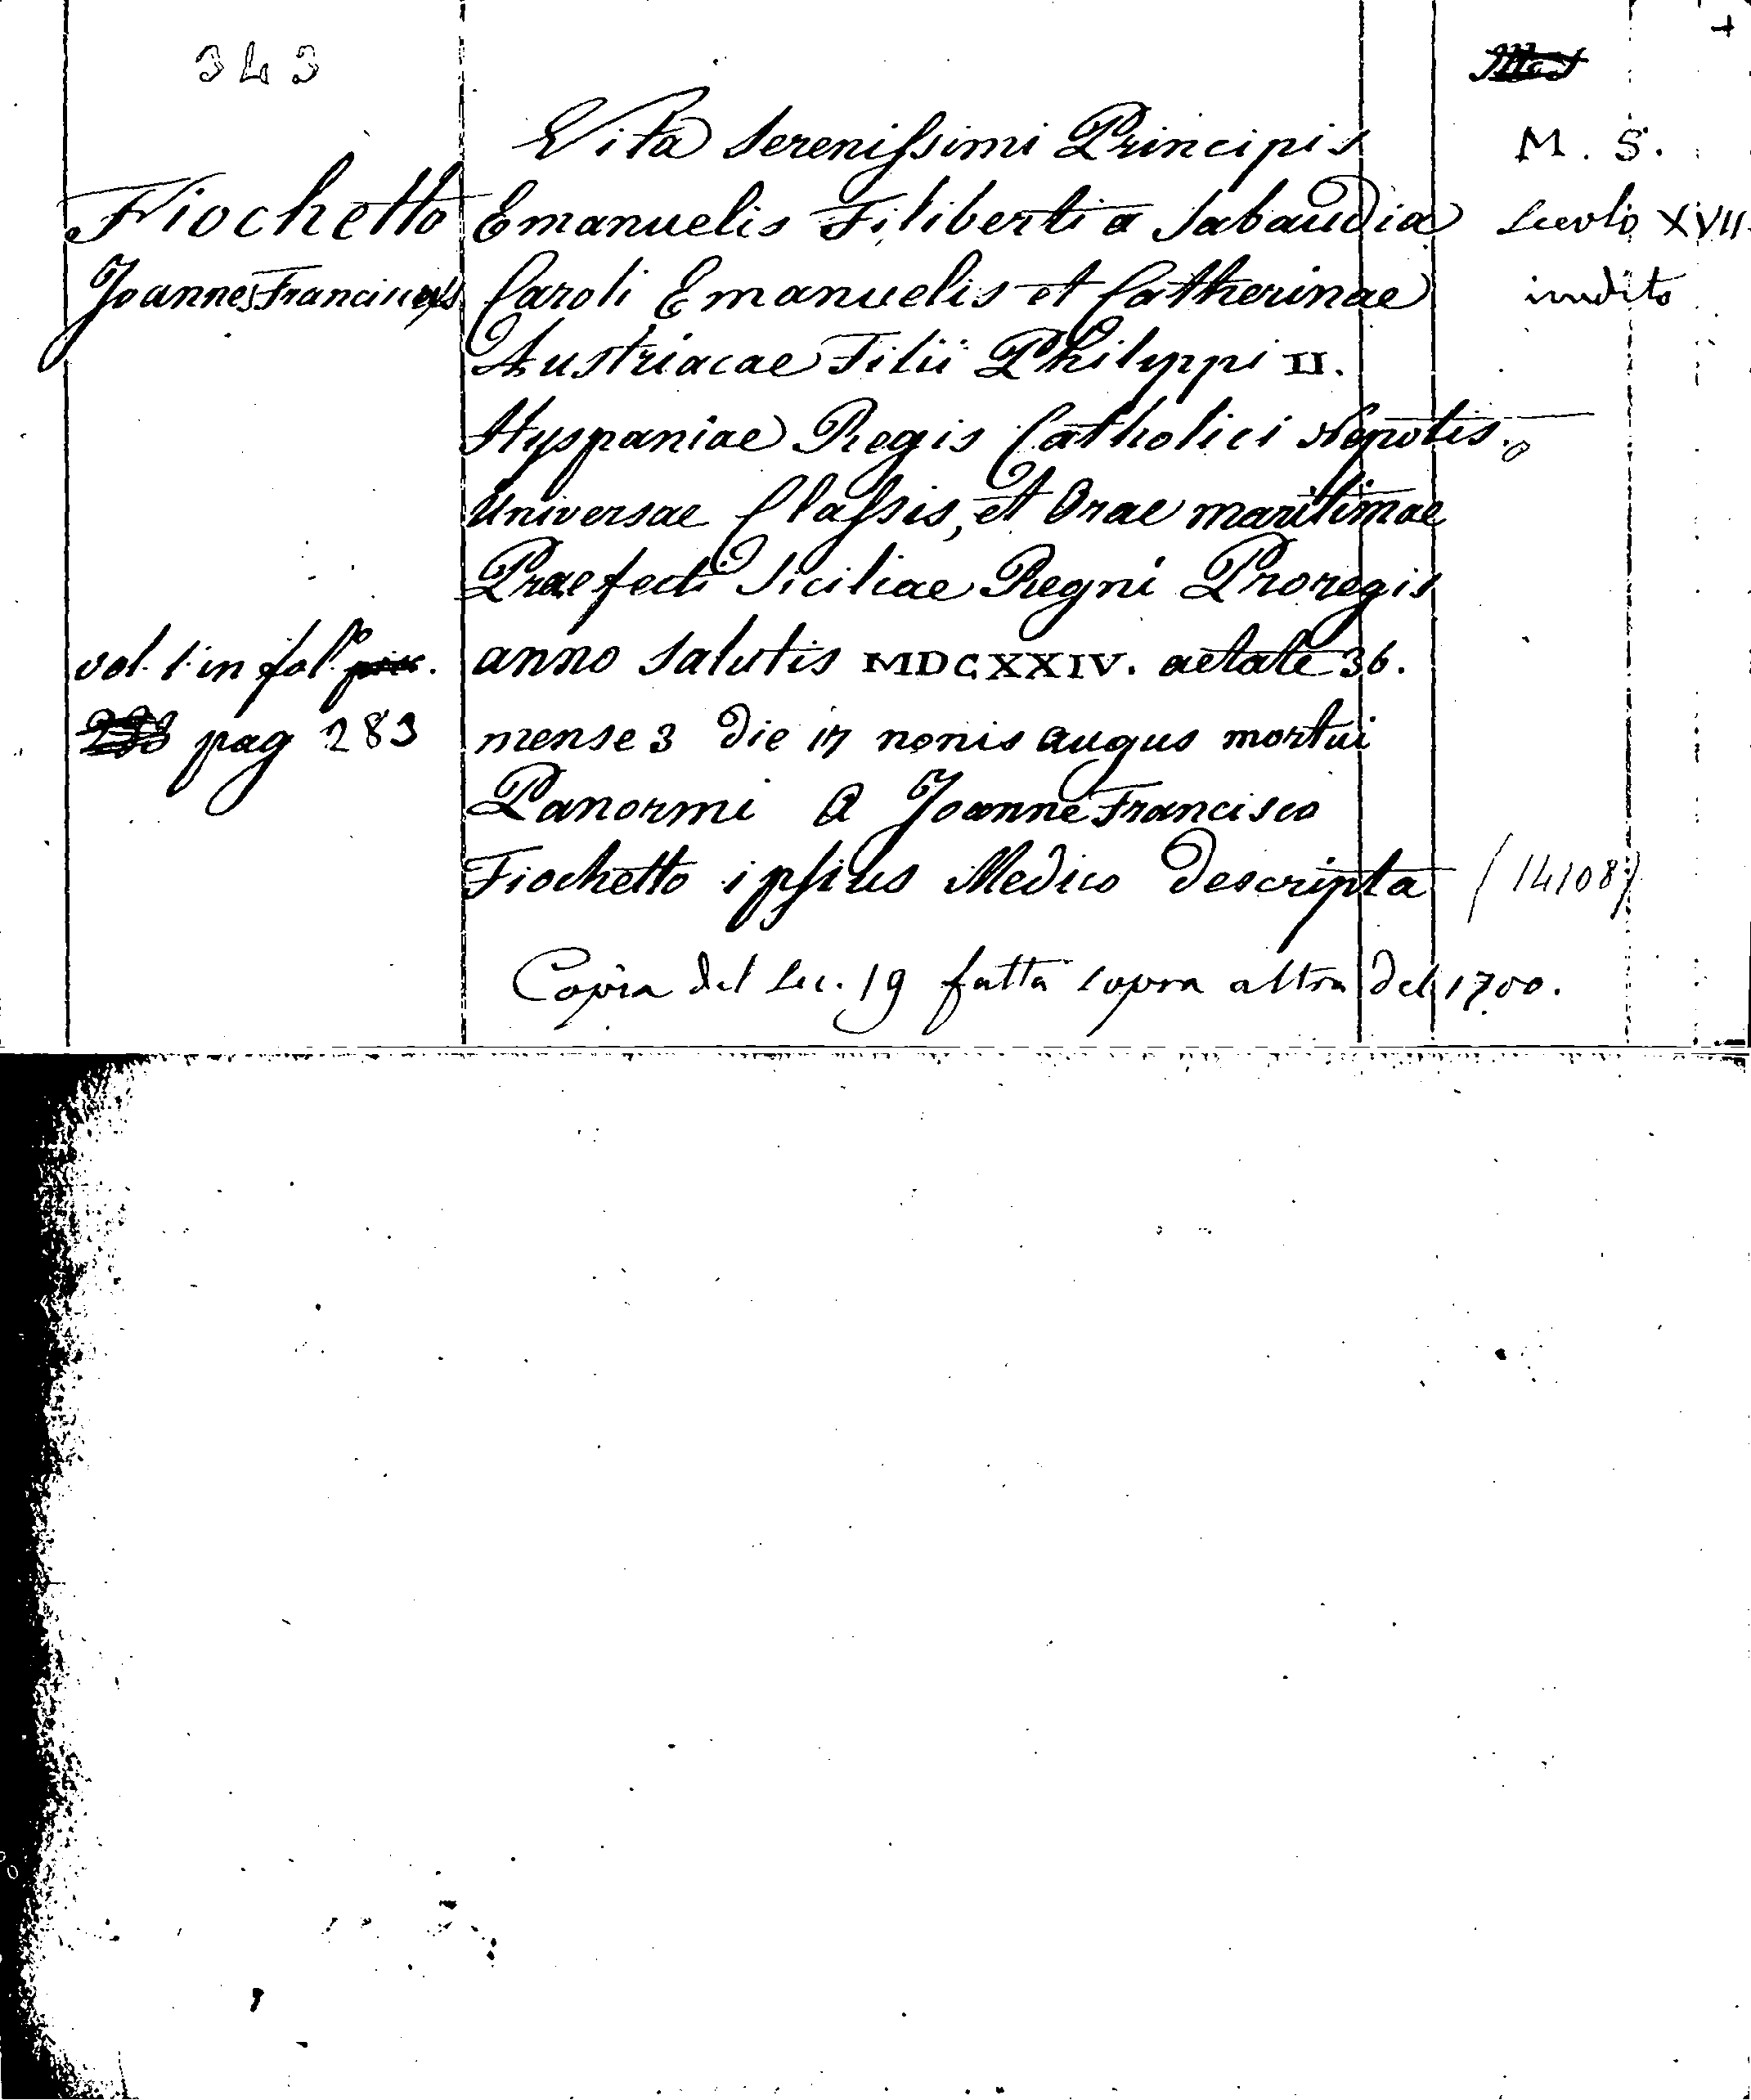 343
Fiochetto
Joannes Franciscus
vol. 1. in fol.º
pag 283
Vita Serenissimi Principis
Emanuelis Filiberti a Sabaudia
Caroli Emanuelis et Catherinae
Austriacae Filii Philippi II.
Hyspaniae Regis Catholici Nepotis.
Universae Classis, et Orae maritimae
Praefecti Siciliae Regni Proregis
anno Salutis MDCXXIV. aetate 36.
mense 3 die 17 nonis augus mortui
Panormi a Joanne Francisco
Fiochetto ipsius Medico descripta
Copia del sec. 19 fatta sopra altra del 1700.
M. S.
Secolo XVII
inedito
(14108)